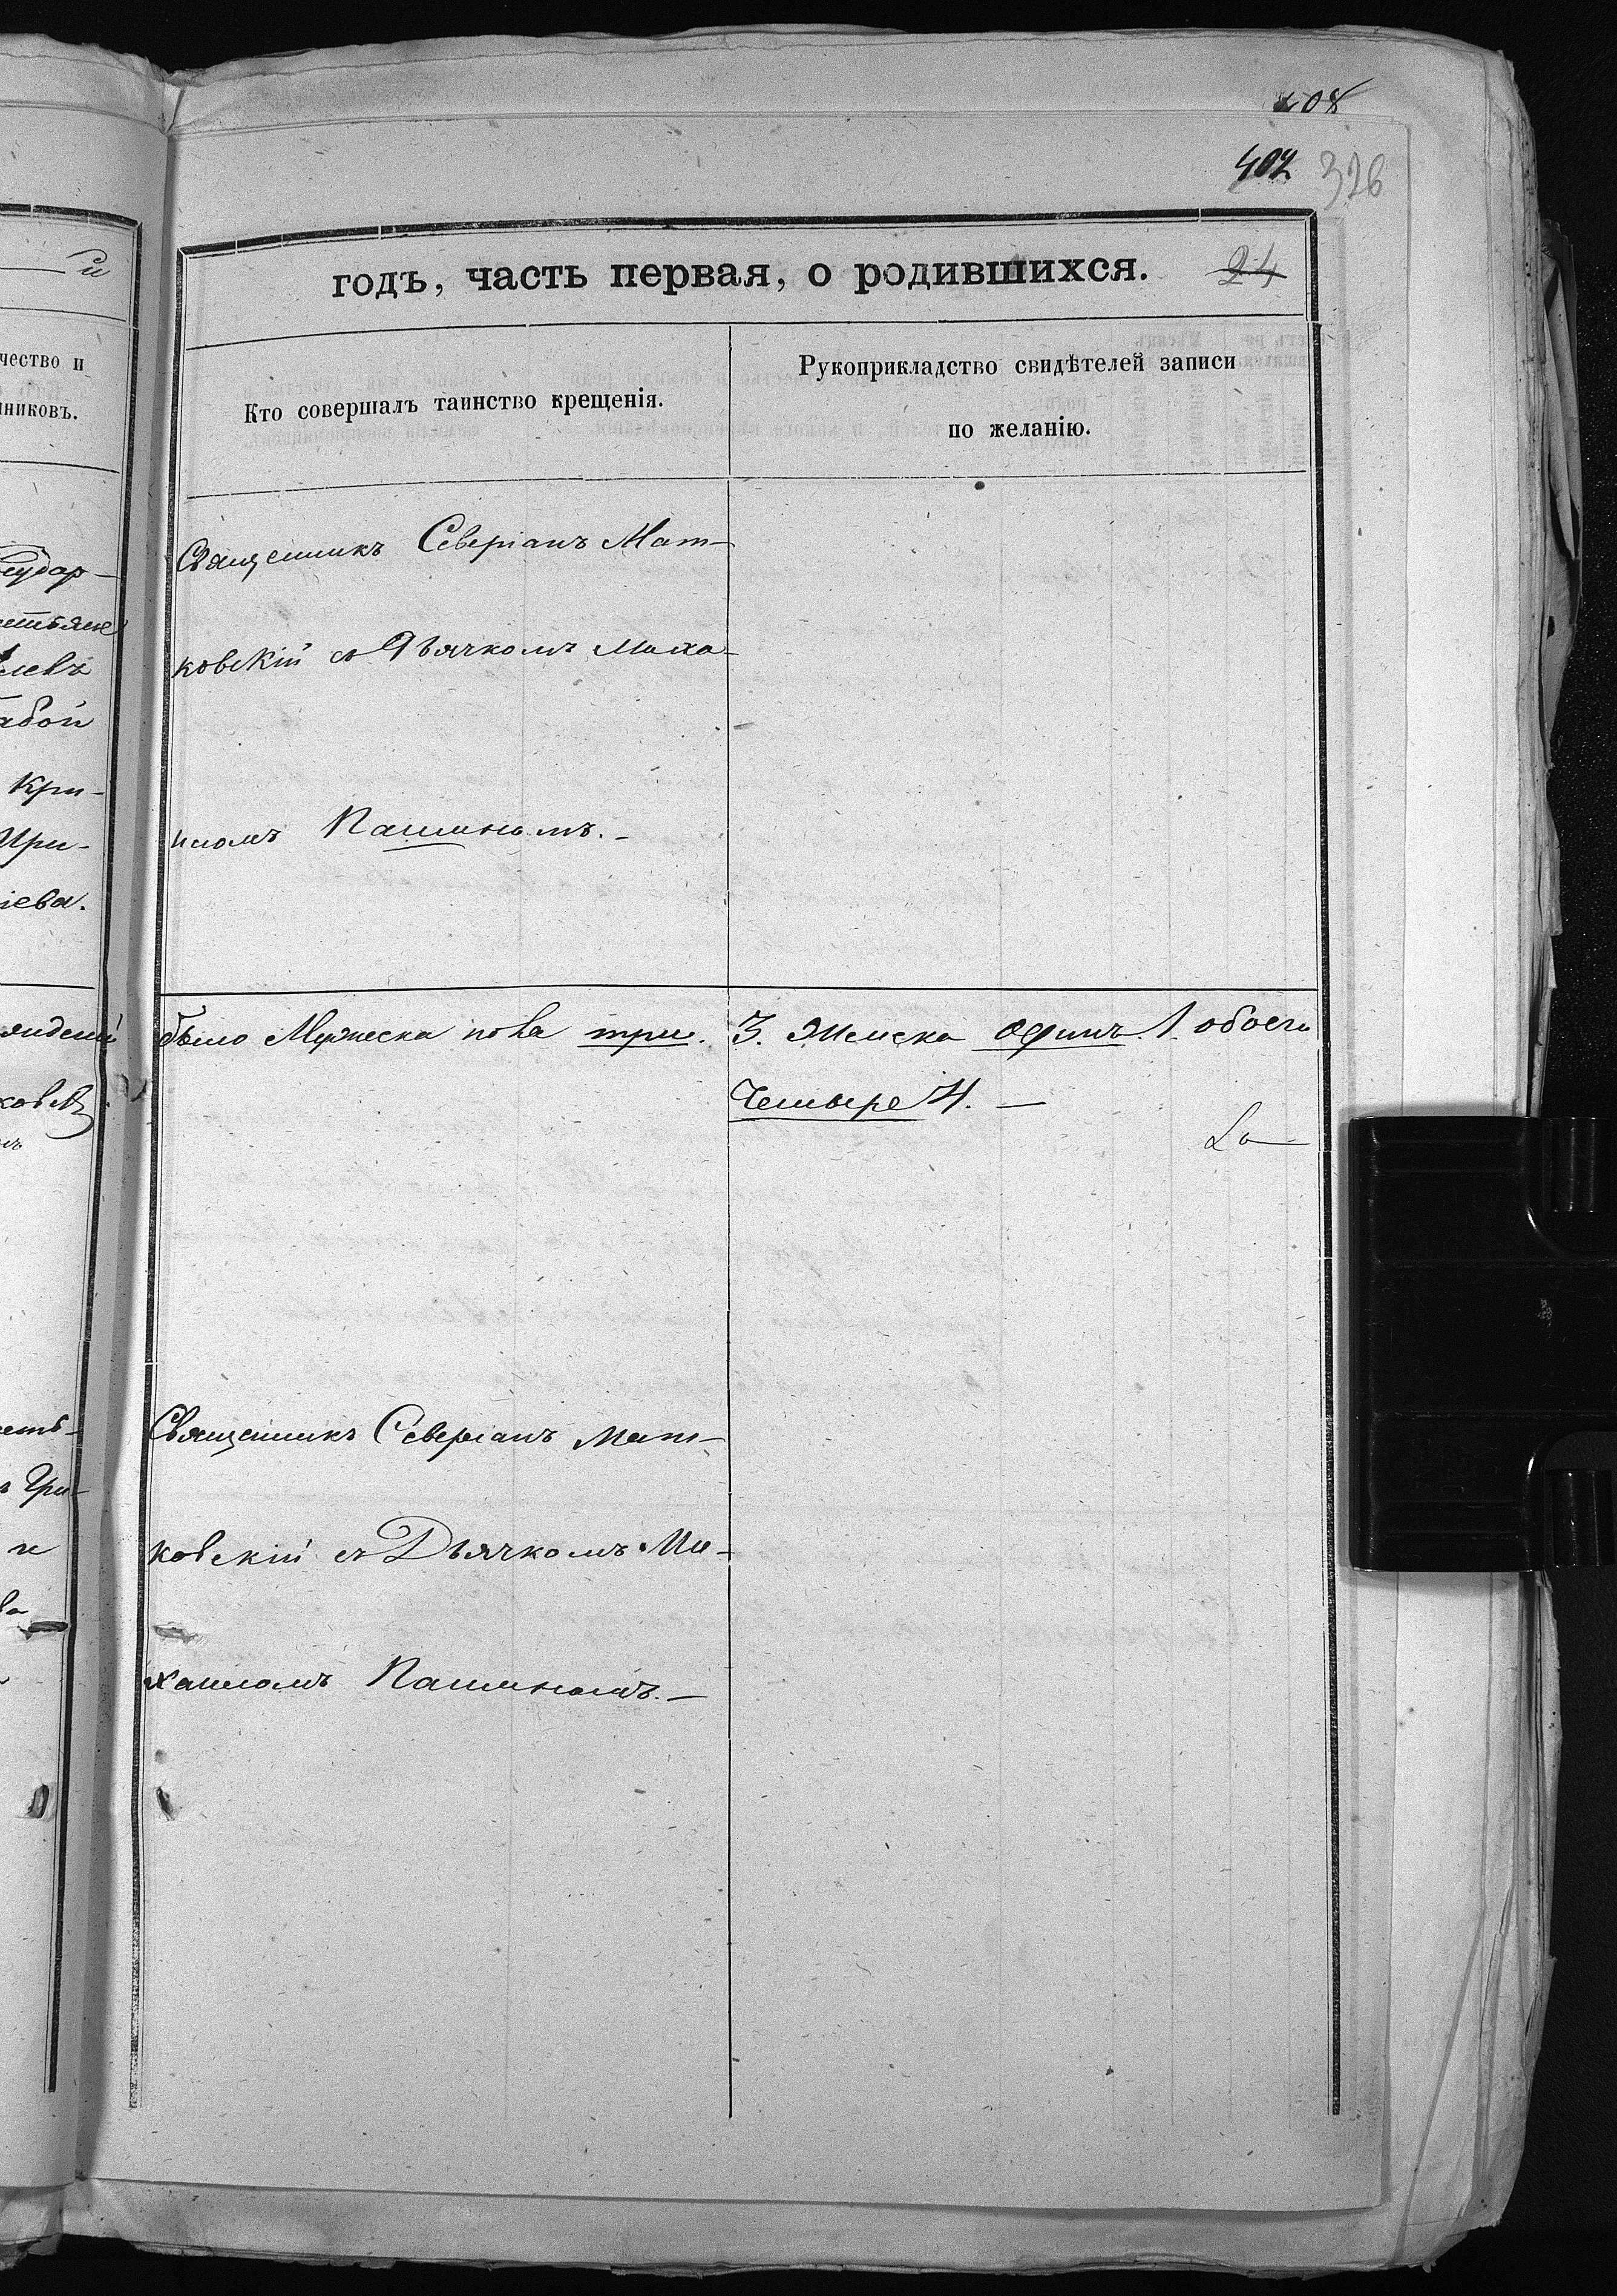 408
402 326
годъ, часть первая, о родившихся. 24
Кто совершалъ таинство крещенія.
Рукоприкладство свидѣтелей записи
по желанію.
чество и
никовъ.
Священникъ Северіанъ Мат-
ковскій съ Дьячкомъ Миха-
иломъ Пашинымъ.-
абой
Кри-
Ири-
іева.
было Мужеска пола три. 3. Женска одинъ. 1. обоего
Четыре 4. —
Священникъ Северіанъ Мат-
ковскій съ Дьячкомъ Ми-
хаиломъ Пашинымъ.—